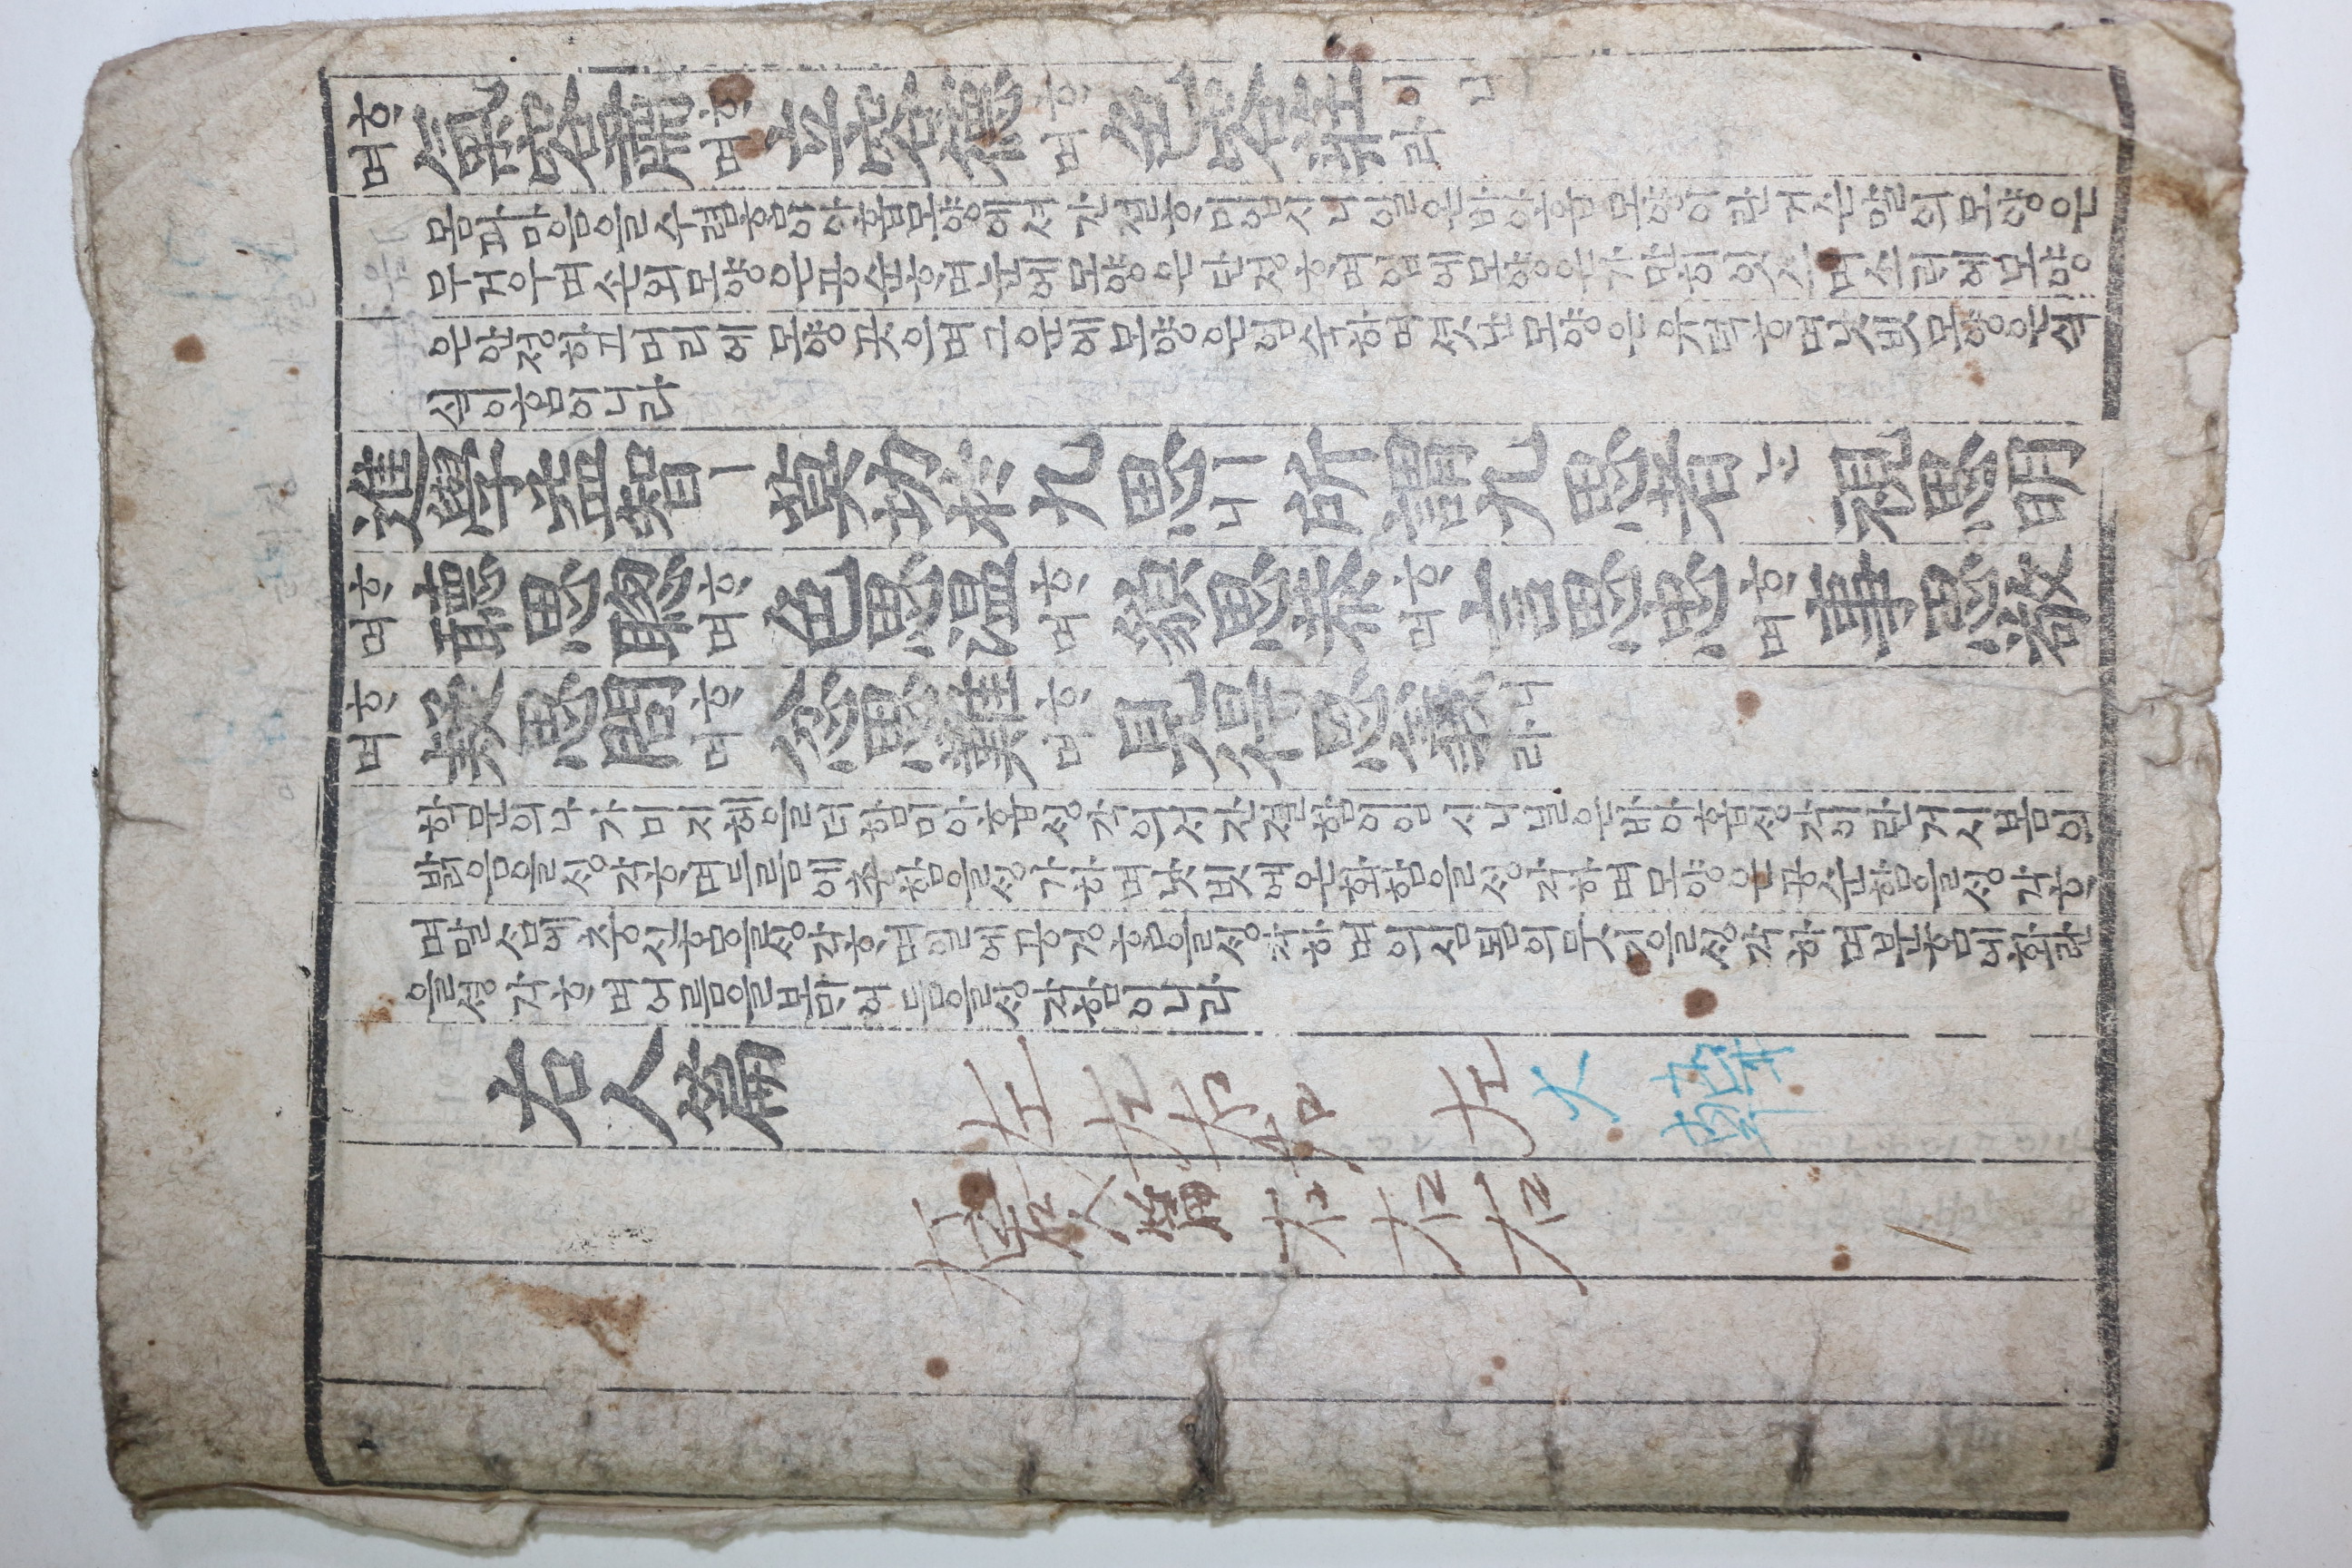 ᄒᆞ며 氣容肅ᄒᆞ며 立容德ᄒᆞ며 色容莊이니라
몸과마음을수렴홈이아홉모양에셔간졀ᄒᆞ미읍시니일은바아홉모양이란거슨발의모양은
무거우며손의모양은공슌ᄒᆞ며눈에모양은단졍ᄒᆞ며입에모양은가만히잇스며소리에모양
은안졍하고머리에모양곳으며긔운에모양은엄슉하며셧난모양은유덕ᄒᆞ며낫빗모양은씩
씩이홈이니라
進學益智ㅣ 莫切於九思ㅣ니 所謂九思者ᄂᆞᆫ 視思明
ᄒᆞ며 聽思聰ᄒᆞ며 色思温ᄒᆞ며 貌思恭ᄒᆞ며 言思忠ᄒᆞ며 事思敬
ᄒᆞ며 疑思問ᄒᆞ며 忿思難ᄒᆞ며 見得思義니라
학문의나가미지혜을더함미아홉ᄉᆡᆼ각의셔간졀함이읍시니일은바아홉ᄉᆡᆼ각이란거시봄의
밝음을ᄉᆡᆼ각ᄒᆞ며드름에총함을ᄉᆡᆼ가하며낫빗에온화함을ᄉᆡᆼ각하며모양은공슌함을ᄉᆡᆼ각하
며말삼에츙신홈을ᄉᆡᆼ각ᄒᆞ며일에공경홈을ᄉᆡᆼ각하며의심됨의무르심을ᄉᆡᆼ각하며분홈에환란
을ᄉᆡᆼ각ᄒᆞ며어름을보ᄆᆡ의듬을ᄉᆡᆼ각함이니라
右人篇
左左右右 左大韓
右人篇右右右